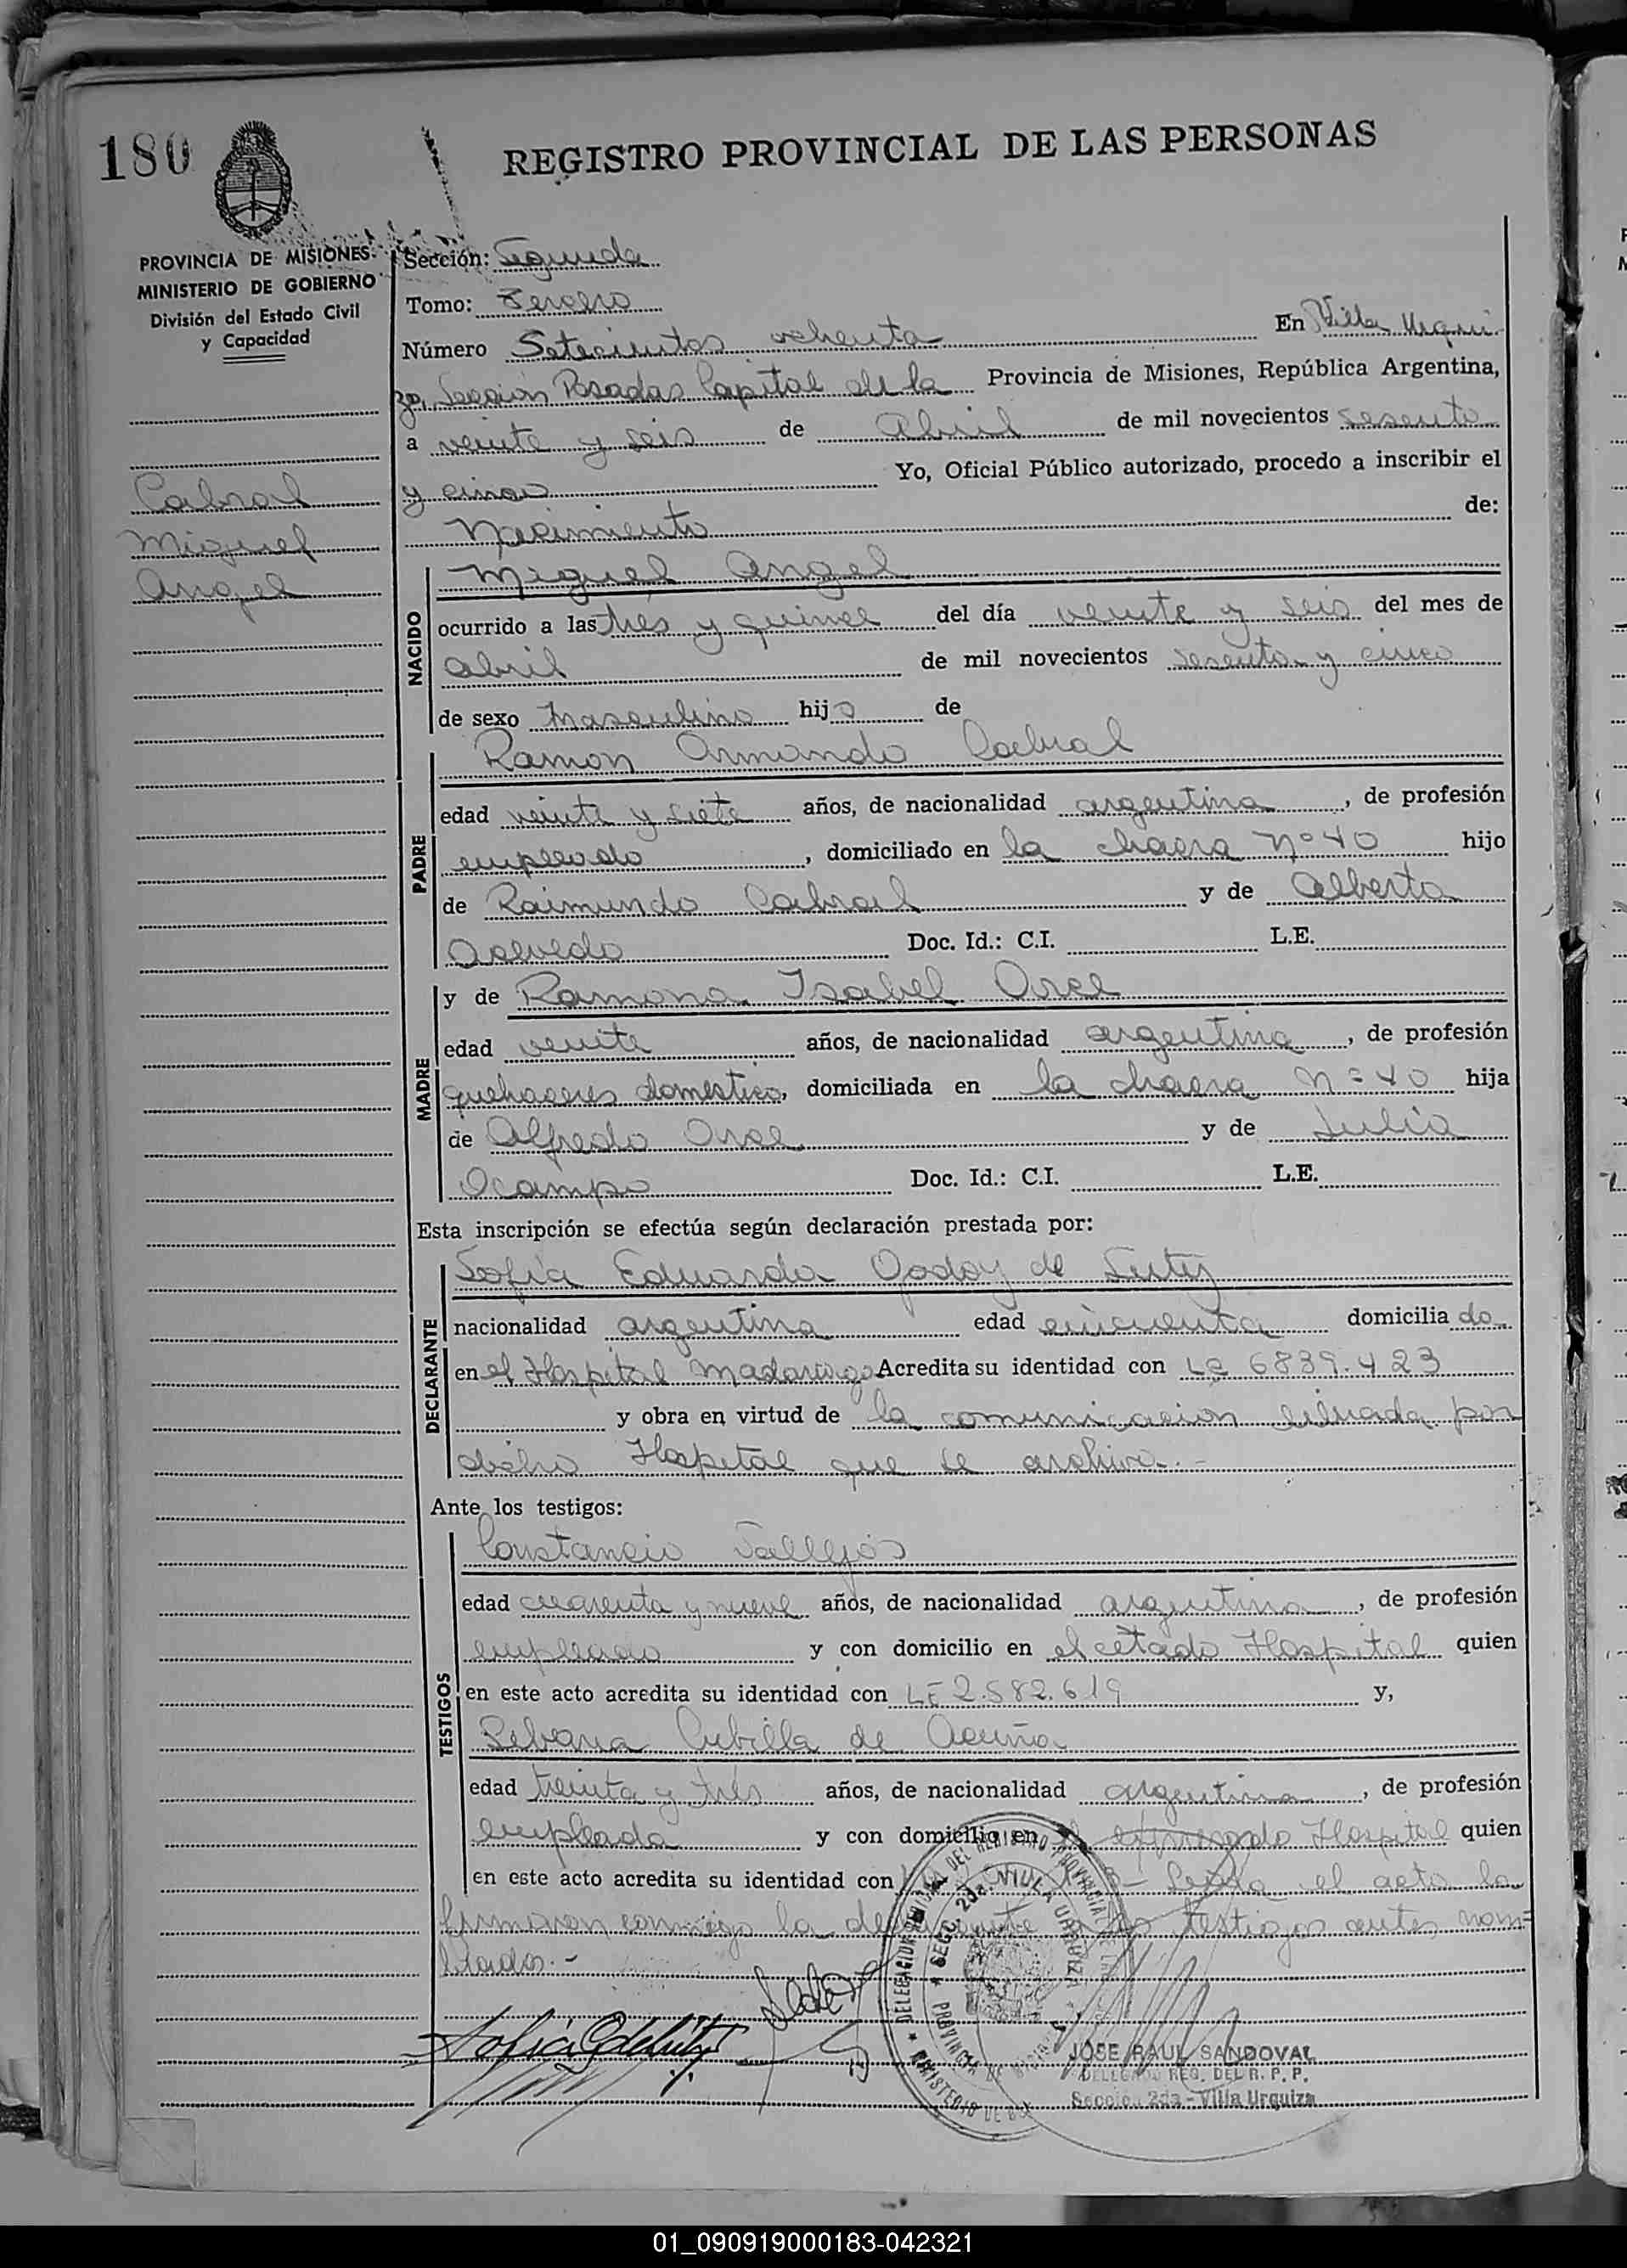 180
REGISTRO PROVINCIAL DE LAS PERSONAS
PROVINCIA DE MISIONES
MINISTERIO DE GOBIERNO
División del Estado Civil
y Capacidad
Cabral
Miguel
Angel
Sección: Segunda
Tomo: Tercero
Número Setecientos ochenta En Villa Urqui
za, Sección Posadas Capital de la Provincia de Misiones, República Argentina,
a veinte y seis de Abril de mil novecientos sesenta
y cinco Yo, Oficial Público autorizado, procedo a inscribir el
Nacimiento de:
NACIDO
Miguel Angel
ocurrido a las tres y quince del día veinte y seis del mes de
abril de mil novecientos sesenta y cinco
de sexo masculino hijo de
PADRE
Ramon Armando Cabral
edad veinte y siete años, de nacionalidad argentina, de profesión
empleado, domiciliado en la chacra Nº 40 hijo
de Raimundo Cabral y de Alberta
Acevedo Doc. Id.: C.I. L.E.
MADRE
y de Ramona Isabel Arce
edad veinte años, de nacionalidad argentina, de profesión
quehaceres domestico, domiciliada en la chacra Nº 40 hija
de Alfredo Arce y de Julia
Ocampo Doc. Id.: C.I. L.E.
Esta inscripción se efectúa según declaración prestada por:
DECLARANTE
Sofía Eduarda Godoy de
nacionalidad argentina edad cincuenta domiciliado
en el Hospital Madariaga Acredita su identidad con LC 6839.423
y obra en virtud de la comunicacion librada por
dicho Hospital que se archiva.-
Ante los testigos:
TESTIGOS
Constancio Vallejos
edad cuarenta y nueve años, de nacionalidad argentina, de profesión
empleado y con domicilio en el citado Hospital quien
en este acto acredita su identidad con LE 2.582.619 y,
Silvana Cubilla de Acuña
edad treinta y tres años, de nacionalidad argentina, de profesión
empleada y con domicilio en el Hospital quien
en este acto acredita su identidad con Leída el acta la
firmaron conmigo la declarante y los testigos antes nom=
brados.-
DELEGACION DEL REGISTRO PROVINCIAL DE LAS
SECC. 2da. VILLA URQUIZA
PROVINCIA DE MISIONES
MINISTERIO DE
JOSE RAUL SANDOVAL
DELEGADO REG. DEL R. P. P.
Sección 2da - Villa Urquiza
01_090919000183-042321